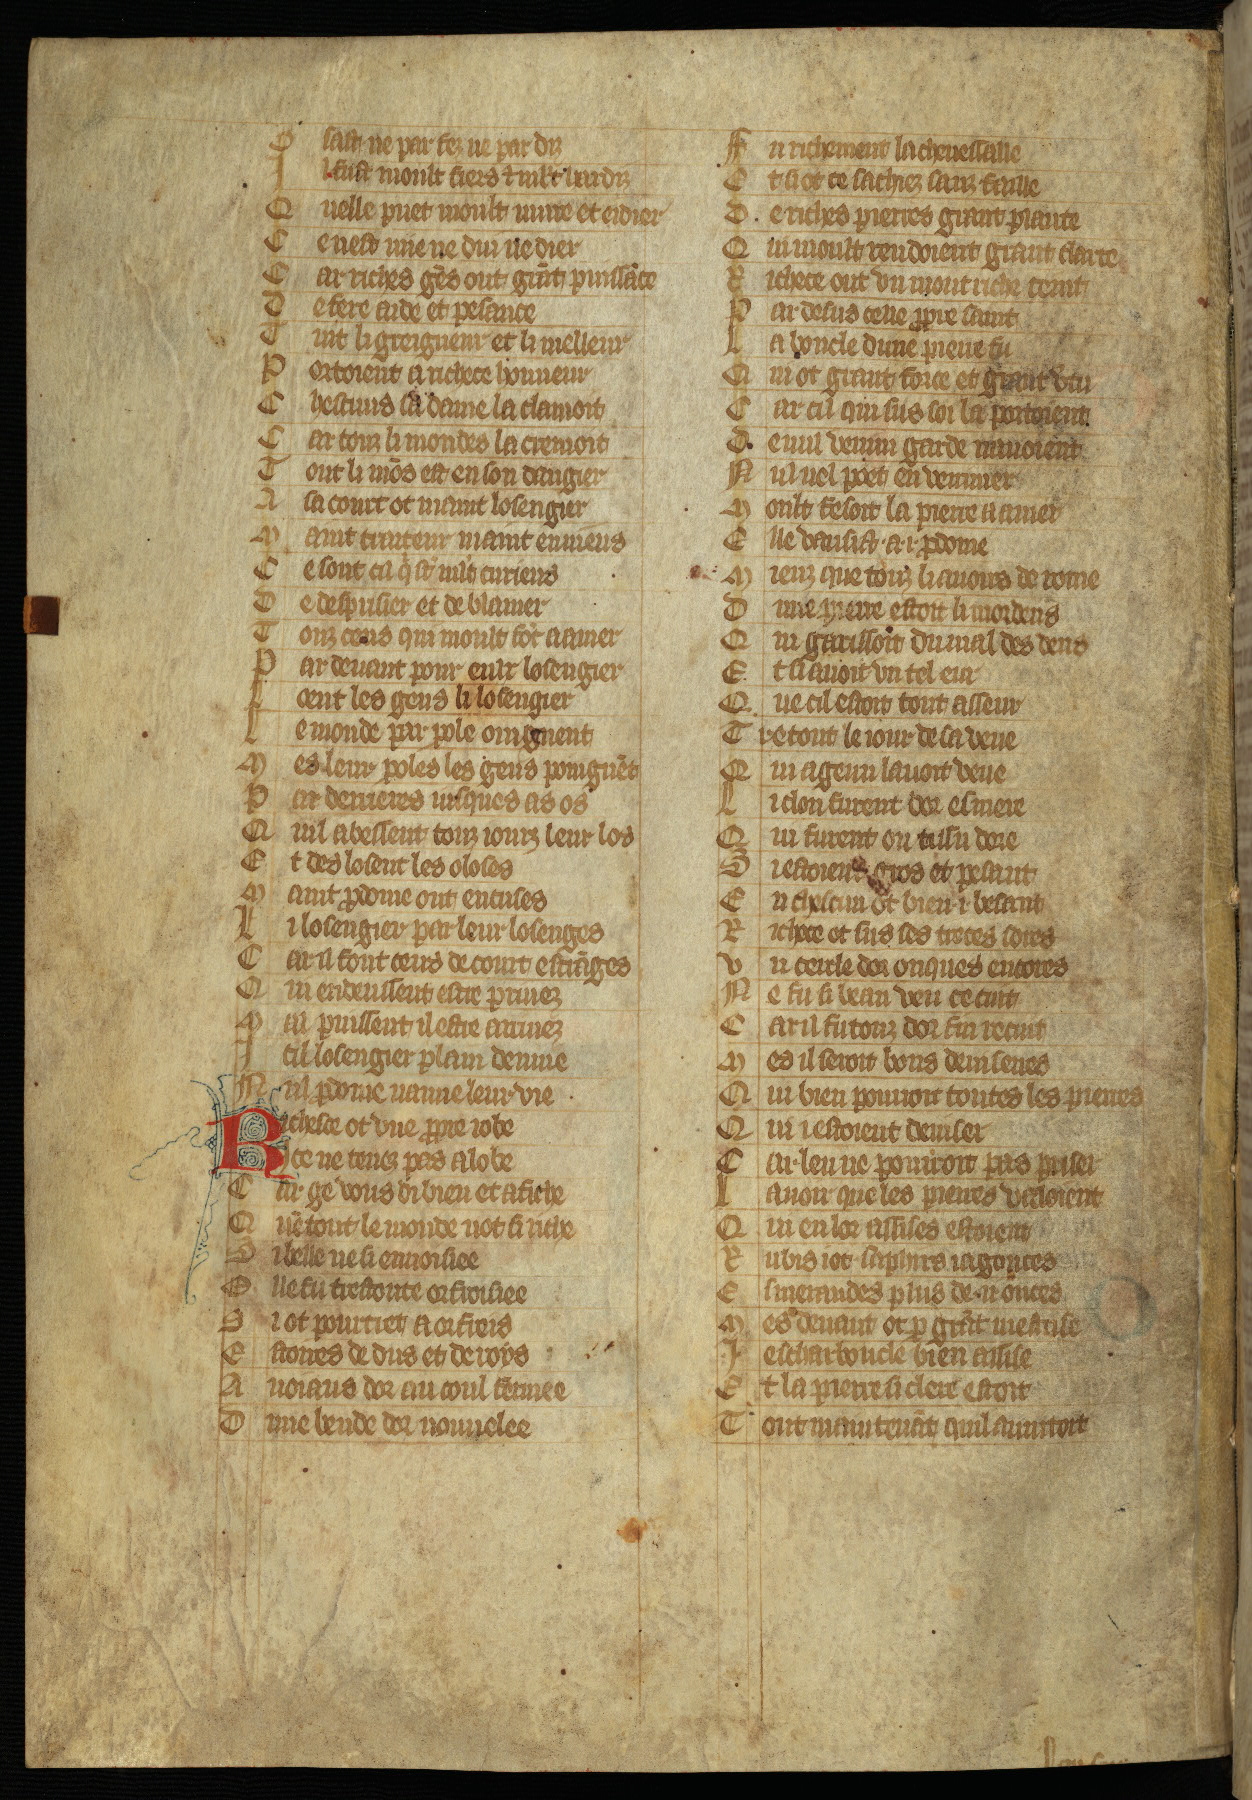 O sast ne par fez ne par diz
I l fust moult fiers et mlt hardiz
Q uelle puet moult nuire et eidier
C e nest mie ne dui ne dier
C ar riches gēs ont grāt puissāce
D e fere aide et pesance
T uit li greigneur et li melleur
P ortoient a richece honneur
C hescuns sa dame la clamoit
C ar touz li mondes la cremoit
T out li mōs est en son dangier
A sa court ot maint losengier
M aint traiteur maint enuieus
C e sont cil q̇ st mlt curieus
D e desprisier et de blamer
T ouz ceus qui moult fōt a amer
P ar deuant pour eulr losengier
L oent les gens li losengier
L e monde par pole oingnent
M es leur poles les gens poingnēt
P ar derrieres iusques as os
Q uil abessent touz iours leur los
E t des losent les oloses
M aint pdome ont encuses
L i losengier par leur losenges
C ar il font ceus de court estrāges
Q ui endeussent estre priuez
M al puissent il estre ariuez
I cil losengier plain denuie
N ul pdome naime leur vie
R ichesce ot vne ppre robe
I ce ne tenez pas a lobe
C ar ge vous di bien et afiche
Q uē tout le monde not si riche
S i belle ne si enuoisiee
E lle fu trestoute orfroisiee
S i ot pourtret a orfrois
E stoires de dus et de roys
A noiaus dor au coul fermee
D une bende dor nouuelee
F u richement la cheuessaille
E t si ot ce sachiez sanz faille
D e riches pierres grant plante
Q ui moult rendoient grant clarte
R ichece out vn mont riche ceint
P ar desus celle ppre saint
L a boucle dune pierre fu
Q ui ot grant force et grant vtu
C ar cil qui sus soi la portoient
D e nul venin garde nauoient
N ul nel poet en venimer
M oult fesoit la pierre a amer
E lle vausist a .i. pdome
M ieuz que touz li auoirs de rome
D une pierre estoit li mordens
Q ui garissoit du mal des dens
E t si auoit vn tel eur
Q ue cil estoit tout asseur
T retout le iour de sa veue
Q ui a geun lauoit veue
L i clou furent dor esmere
Q ui furent ou tissu dore
S i estoient gros et pesant
E n chescun ot bien .i. besant
R ichece ot sus ses treces sores
V n cercle dor onques encores
N e fu si beau veu ce cuit
C ar il fu touz dor fin recuit
M es il seroit bons deuiseres
Q ui bien pourroit toutes les pierres
Q ui i estoient deuiser
C ar len ne pourroit pas priser
L auoir que les pierres valoient
Q ui en lor assises estoient
R ubis iot saphirs iagonces
E smeraudes plus de .ii. onces
M es deuant ot p grāt mestrise
I escharboucle bien assise
E t la pierre si clere estoit
T out maintenāt quil anuitoit